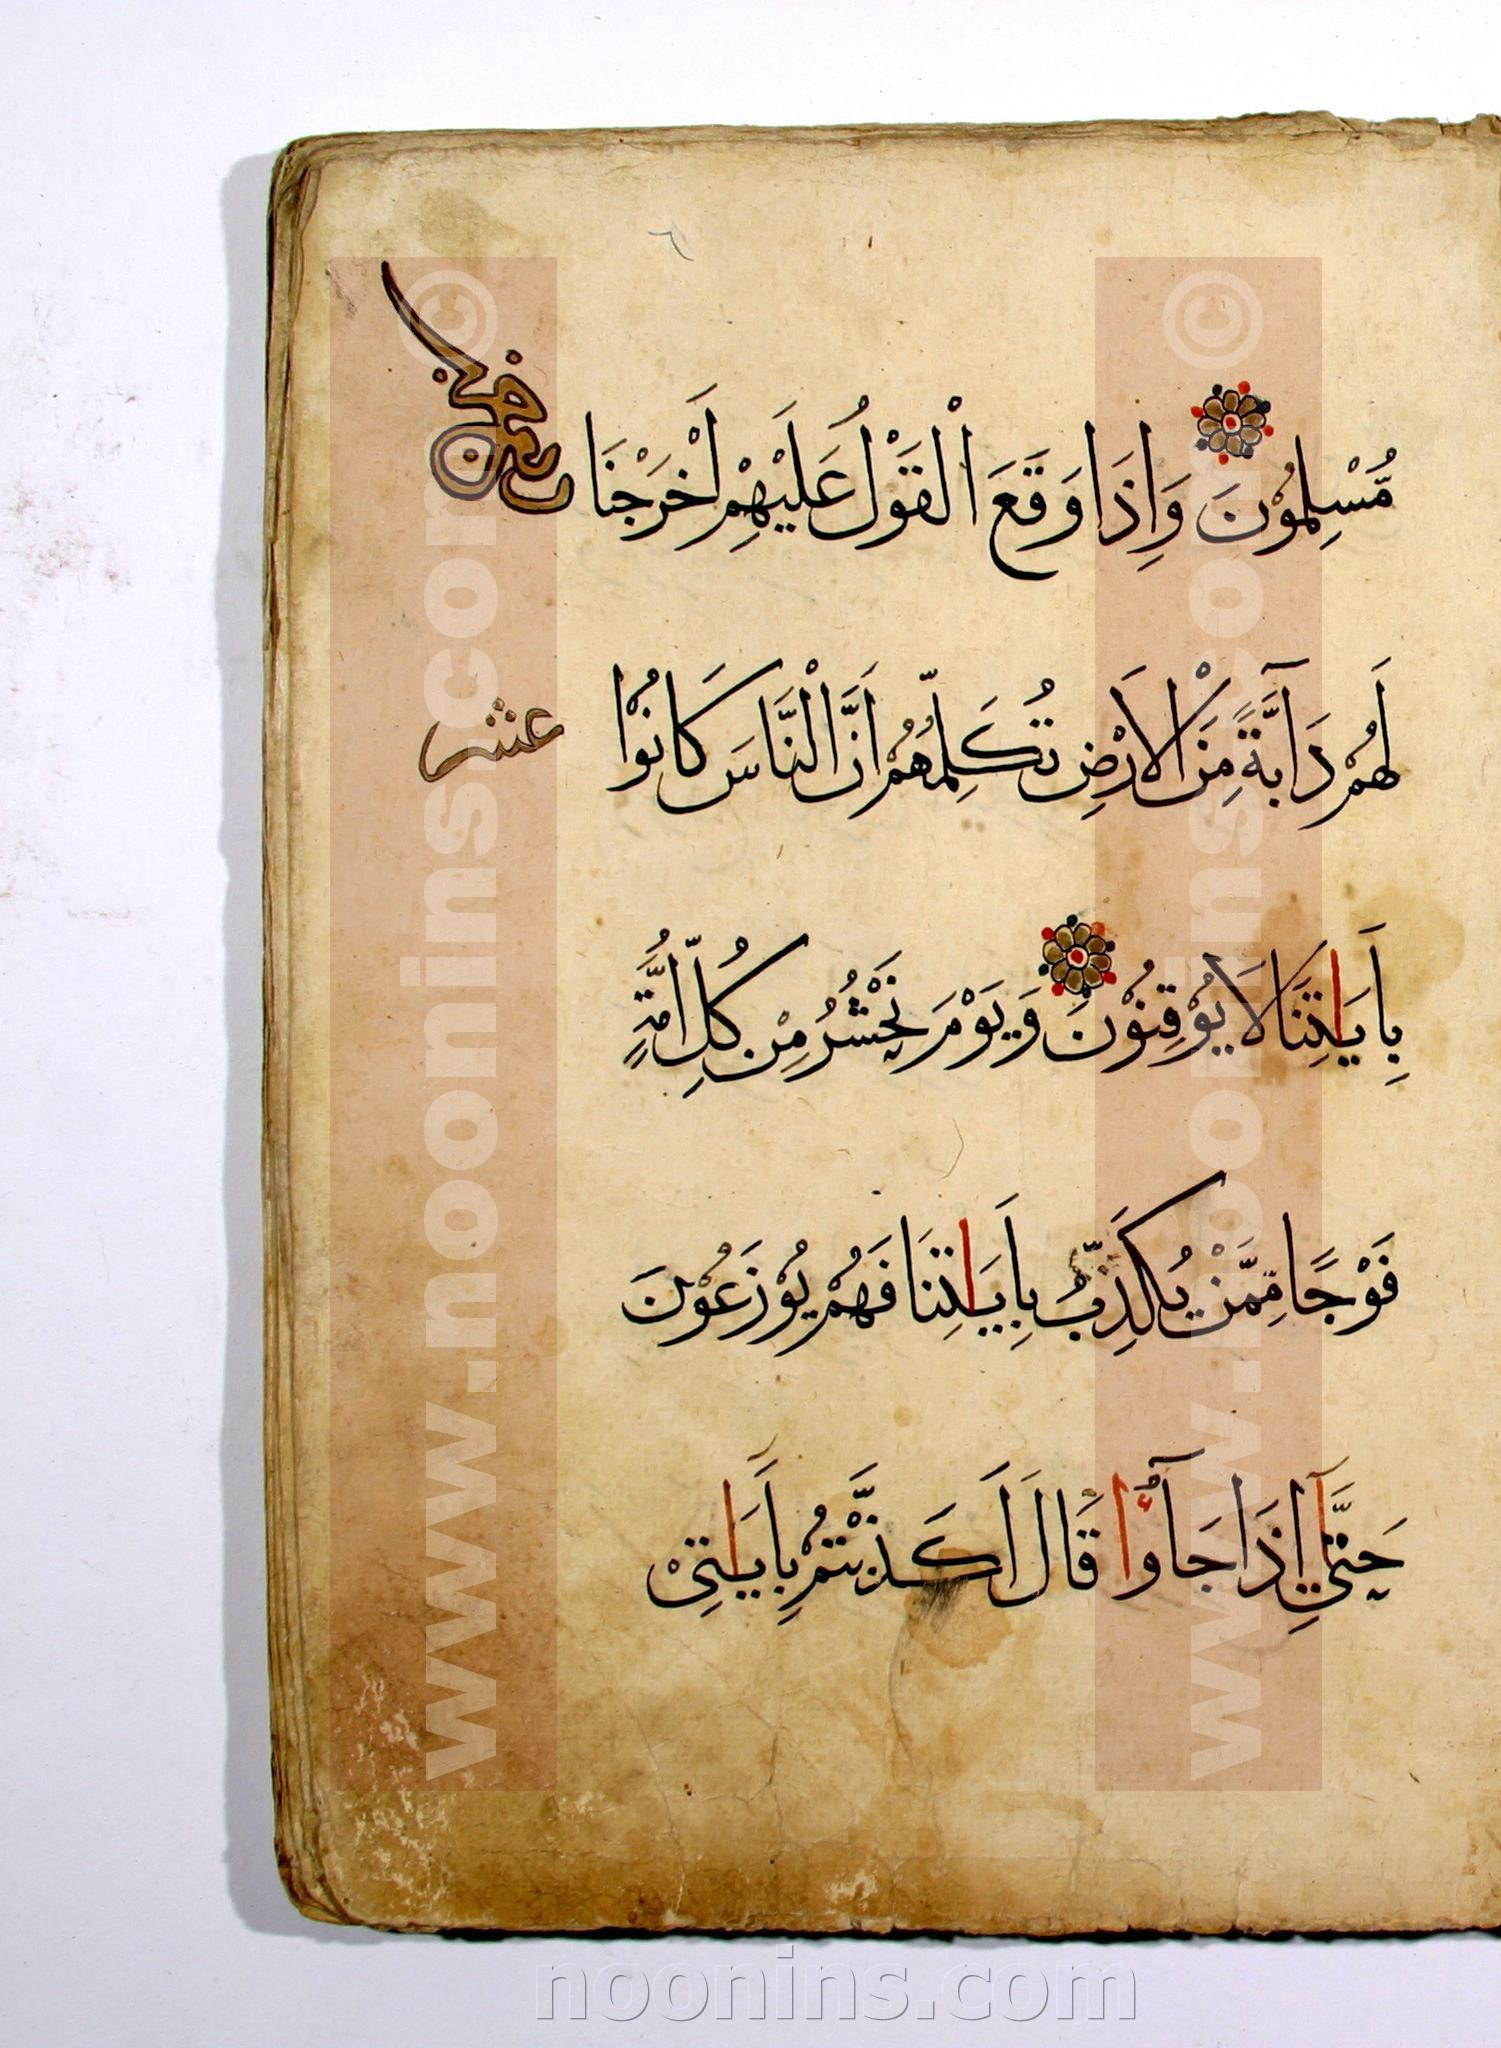 ٦
مُّسْلِمُوْنَ وَاِذَا وَقَعَ اْلقَوْلُ عَلَيْهِمْ اَخْرَجْنَا
لَهُمْ دَآبَّةً مِنَ الْاَرْضِ تُكَلِّمُهُمْ اَنَّ الْنَّاسَ كَانُوْا
عشر
بِاَيَاتِنَا لَا يُوْقِنُوْنَ وَيَوْمَ نَحْشُرُ مِنْ كُلِّ اُمَّةٍ
فَوْجًا مِمَّنْ يُكَذِّبُ بِاَيَاتِنَا فَهُمْ يُوْزَعُوْنَ
حَتَّى اِذَا جَآؤُا قَالَ اَكَذَّبْتُمْ بِاَيَاتِىْ
www.noonins.com ©
www.noonins.com ©
noonins.com